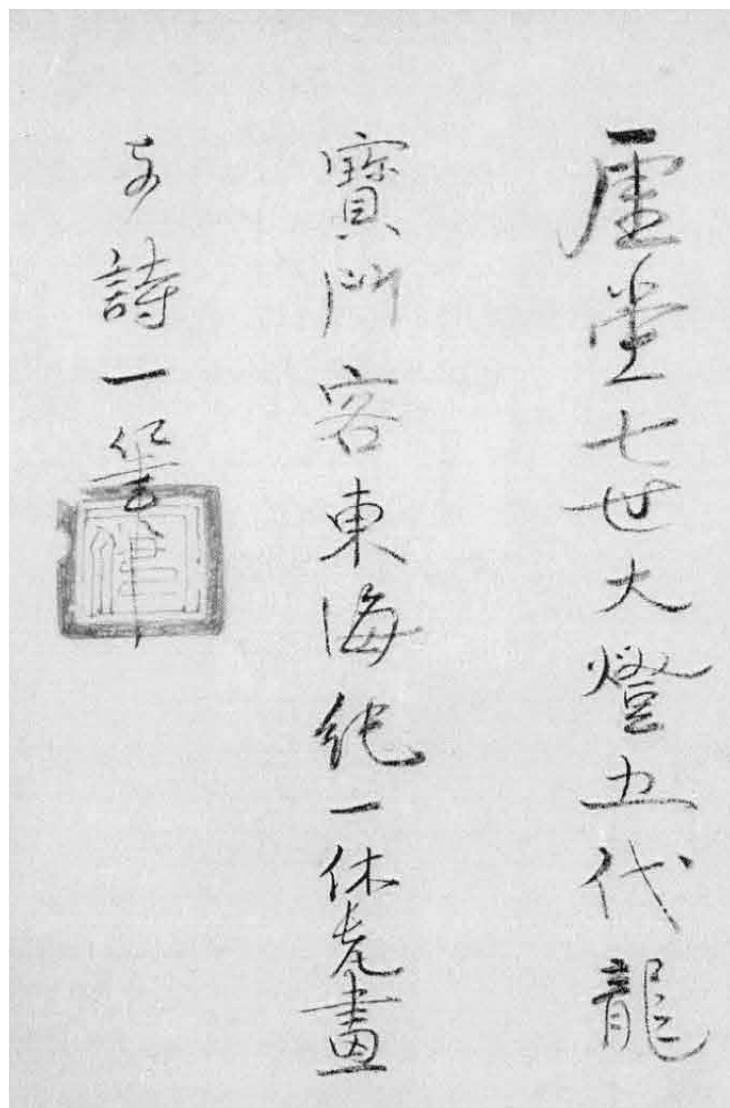 虚堂七世大燈五代龍
寶門客東海純一休畫
詩一筆